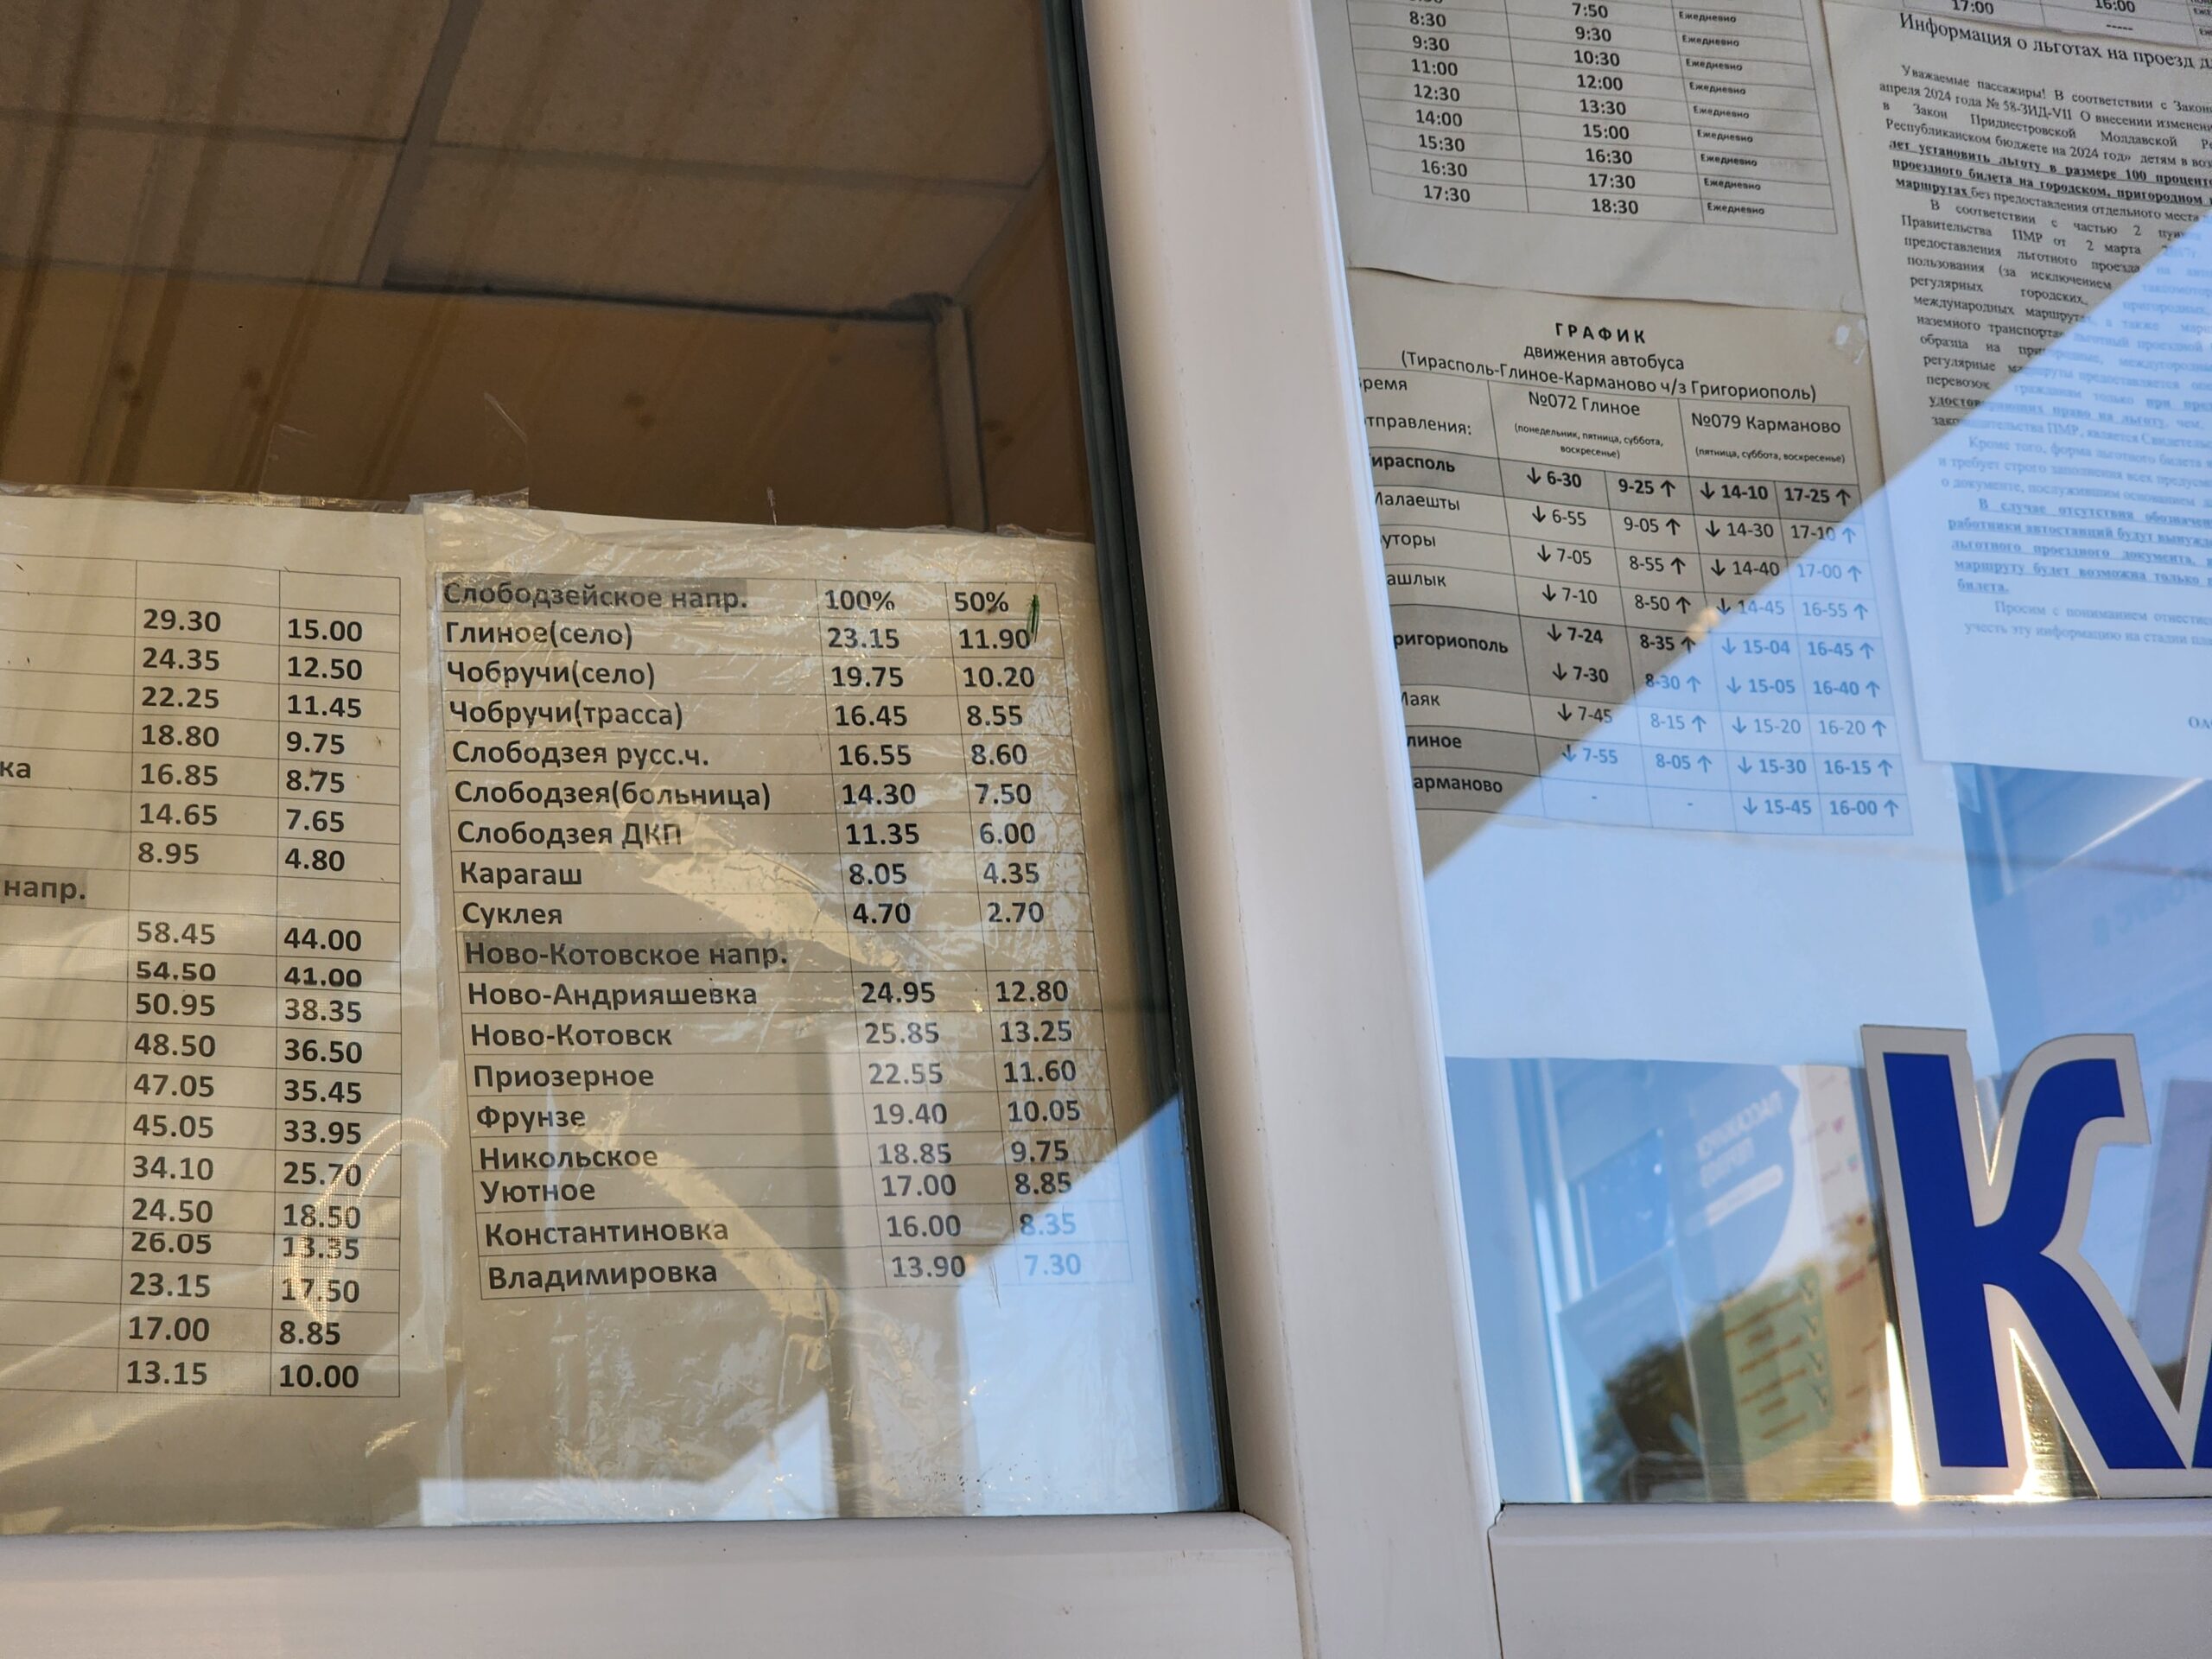 29.30 15.00
24.35 12.50
22.25 11.45
18.80 9.75
ка 16.85 8.75
14.65 7.65
8.95 4.80
напр.
58.45 44.00
54.50 41.00
50.95 38.35
48.50 36.50
47.05 35.45
45.05 33.95
34.10 25.70
24.50 18.50
26.05 13.35
23.15 17.50
17.00 8.85
13.15 10.00
Слободзейское напр. 100% 50%
Глиное(село) 23.15 11.90
Чобручи(село) 19.75 10.20
Чобручи(трасса) 16.45 8.55
Слободзея русс.ч. 16.55 8.60
Слободзея(больница) 14.30 7.50
Слободзея ДКП 11.35 6.00
Карагаш 8.05 4.35
Суклея 4.70 2.70
Ново-Котовское напр.
Ново-Андрияшевка 24.95 12.80
Ново-Котовск 25.85 13.25
Приозерное 22.55 11.60
Фрунзе 19.40 10.05
Никольское 18.85 9.75
Уютное 17.00 8.85
Константиновка 16.00 8.35
Владимировка 13.90 7.30
7:50 Ежедневно
8:30 9:30 Ежедневно
9:30 10:30 Ежедневно
11:00 12:00 Ежедневно
12:30 13:30 Ежедневно
14:00 15:00 Ежедневно
15:30 16:30 Ежедневно
16:30 17:30 Ежедневно
17:30 18:30 Ежедневно
ГРАФИК
движения автобуса
(Тирасполь-Глиное-Карманово ч/з Григориополь)
ремя
тправления:
№072 Глиное
(понедельник, пятница, суббота,
воскресенье)
№079 Карманово
(пятница, суббота, воскресенье)
ирасполь ↓ 6-30 9-25 ↑ ↓ 14-10 17-25 ↑
Малаешты ↓ 6-55 9-05 ↑ ↓ 14-30 17-10 ↑
уторы ↓ 7-05 8-55 ↑ ↓ 14-40 17-00 ↑
ашлык ↓ 7-10 8-50 ↑ ↓ 14-45 16-55 ↑
ригориополь ↓ 7-24 8-35 ↑ ↓ 15-04 16-45 ↑
↓ 7-30 8-30 ↑ ↓ 15-05 16-40 ↑
Маяк ↓ 7-45 8-15 ↑ ↓ 15-20 16-20 ↑
линое ↓ 7-55 8-05 ↑ ↓ 15-30 16-15 ↑
арманово - - ↓ 15-45 16-00 ↑
17:00 16:00
-----
Информация о льготах на проезд д
Уважаемые пассажиры! В соответствии с Закон
апреля 2024 года № 58-ЗИД-VII О внесении изменени
в Закон Приднестровской Молдавской Р
Республиканском бюджете на 2024 год» детям в воз
лет установить льготу в размере 100 процент
проездного билета на городском, пригородном
маршрутах без предоставления отдельного места
В соответствии с частью 2 пункта
Правительства ПМР от 2 марта
предоставления льготного проезда на
пользования (за исключением
регулярных городских, пригородных,
международных маршрутах, а также
наземного транспорта льготный проездной
образца на пригородные, междугородные
регулярные маршруты предоставляется
перевозок граждан только при
удостоверяющих право на льготу, чем,
законодательства ПМР, является
Кроме того, форма льготного билета
и требует строго заполнения всех
о документе, послужившим основанием
В случае отсутствия
работники автостанций будут
льготного проездного документа,
маршруту будет возможна только
билета.
Просим с пониманием отнестись
учесть эту информацию на стадии
К